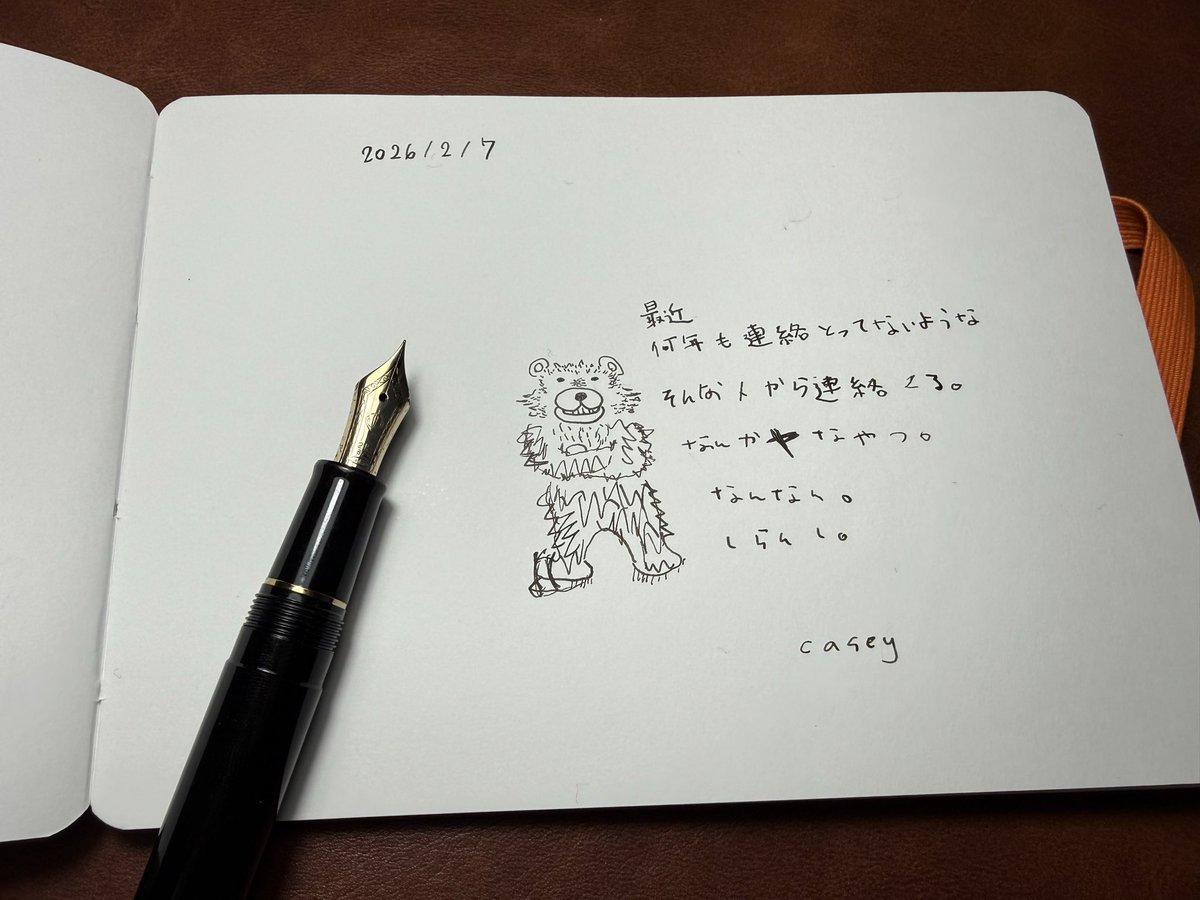 2026/2/7
最近
何年も連絡とってないような
そんな人から連絡くる。
なんかヤなやつ。
なんなん。
しらんし。
casey